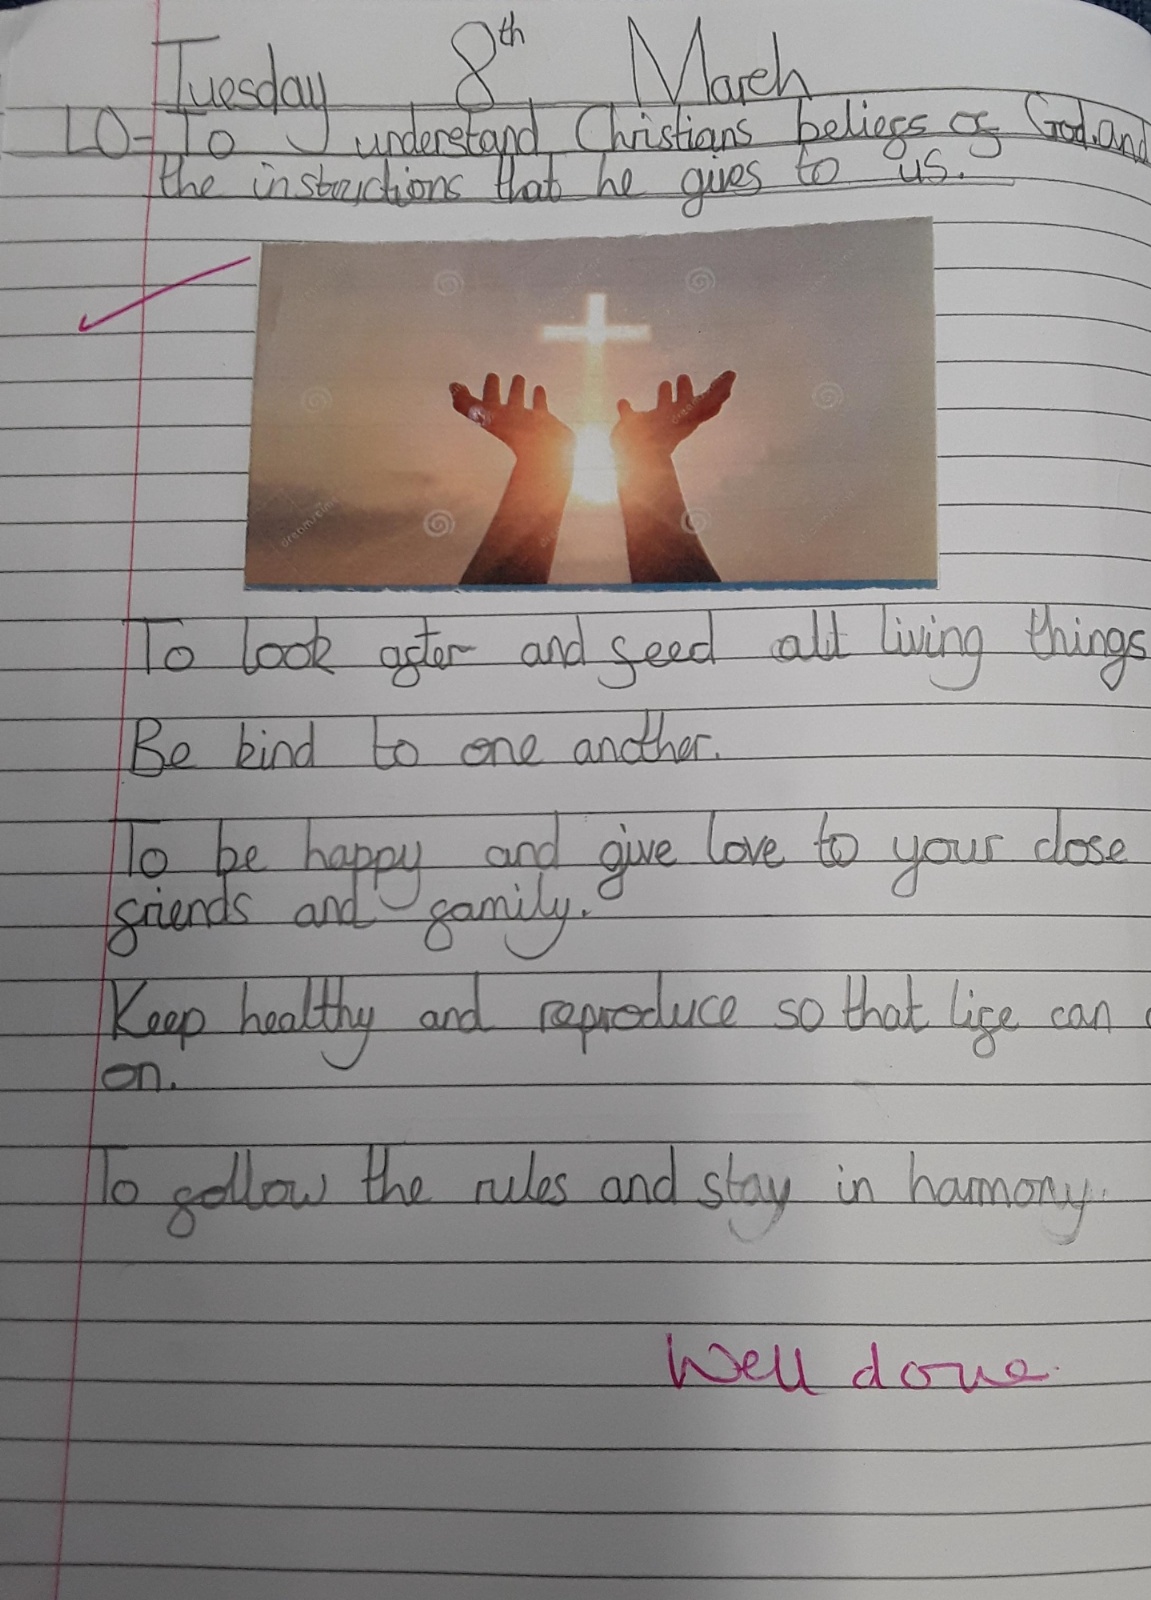 Tuesday 8th March
LO-To understand Christians beliefs of God and
the instructions that he gives to us.
dreamstime
To look after and feed all living things
Be kind to one another.
To be happy and give love to your close
friends and family.
Keep healthy and reproduce so that life can
on.
To follow the rules and stay in harmony.
Well done